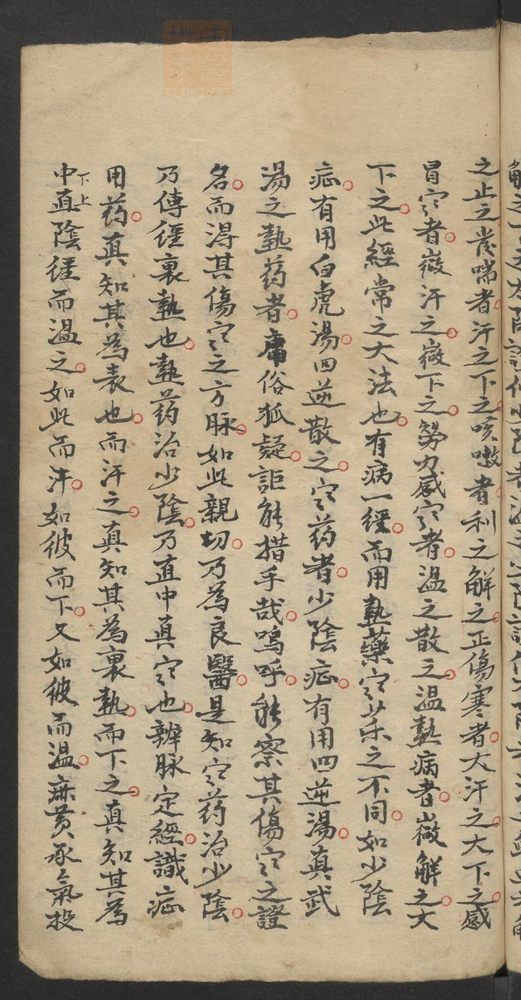 之止之發喘者汗之下之咳嗽者利之解之正傷寒者大汗之大下之感
冒寒者微汗之微下之勞力感寒者温之散之温熱病者微解之大
下之此經常之大法也有病一經而用熱藥寒药之不同如少陰
症有用白虎湯四逆散之寒药者少陰症有用四逆湯真武
湯之熱药者庸俗狐疑詎能措手哉嗚呼能察其傷寒之證
名而得其傷寒之方脉如此親切乃為良醫是知寒药治少陰
乃傳經裏熱也熱药治少陰乃直中真寒也辨脉定經識症
用药真知其為表也而汗之真知其為裏熱而下之真知其為
中直陰經而温之如此而汗如彼而下又如彼而温麻黄承氣投
下上